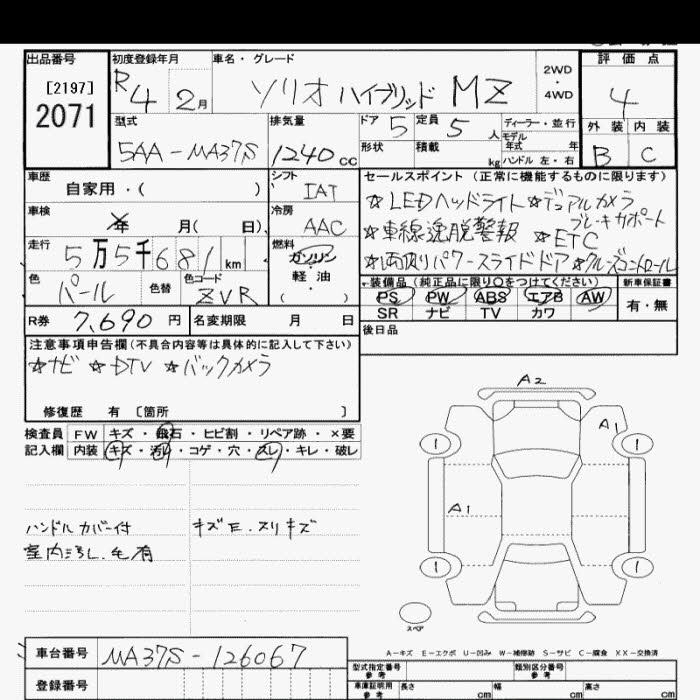 出品番号
[2197]
2071
初度登録年月
R4 2月
車名・グレード
ソリオ ハイブリッド MZ
2WD
・
4WD
評価点
4
外装 内装
B C
型式
5AA-MA37S
排気量
1240cc
ドア 5
定員 5人
形状
積載 kg
ディーラー・並行
モデル
年式 年
ハンドル 左・右
車歴
自家用・( )
シフト
IAT
車検
年 月( 日)
冷房
AAC
走行
5万5千681km
燃料
ガソリン
・
軽油
( )
色
パール
色替
色コード
ZVR
セールスポイント (正常に機能するものに限ります)
☆LEDヘッドライト ☆デュアルカメラ
ブレーキサポート
☆車線逸脱警報 ☆ETC
☆両側パワースライドドア ☆クルーズコントロール
装備品 (純正品に限り○をつけてください)
PS PW ABS エアB AW
SR ナビ TV カワ
新車保証書
有・無
R券 7,690円
名変期限 月 日
後日品
注意事項申告欄(不具合内容等は具体的に記入して下さい)
☆ナビ ☆DTV ☆バックカメラ
修復歴 有 〔箇所 〕
検査員
記入欄
FW キズ・飛石・ヒビ割・リペア跡・×要
内装 キズ・汚れ・コゲ・穴・スレ・キレ・破レ
ハンドルカバー付
キズE.スリキズ
室内汚れ.毛有
A2
A1
1
1
A1
1
1
スペア
A-キズ E-エクボ U-凹み W-補修跡 S-サビ C-腐食 XX-交換済
車台番号
MA37S-126067
登録番号
型式指定番号
参考
類別区分番号
参考
車庫証明用
参考
長さ cm
幅 cm
高さ cm